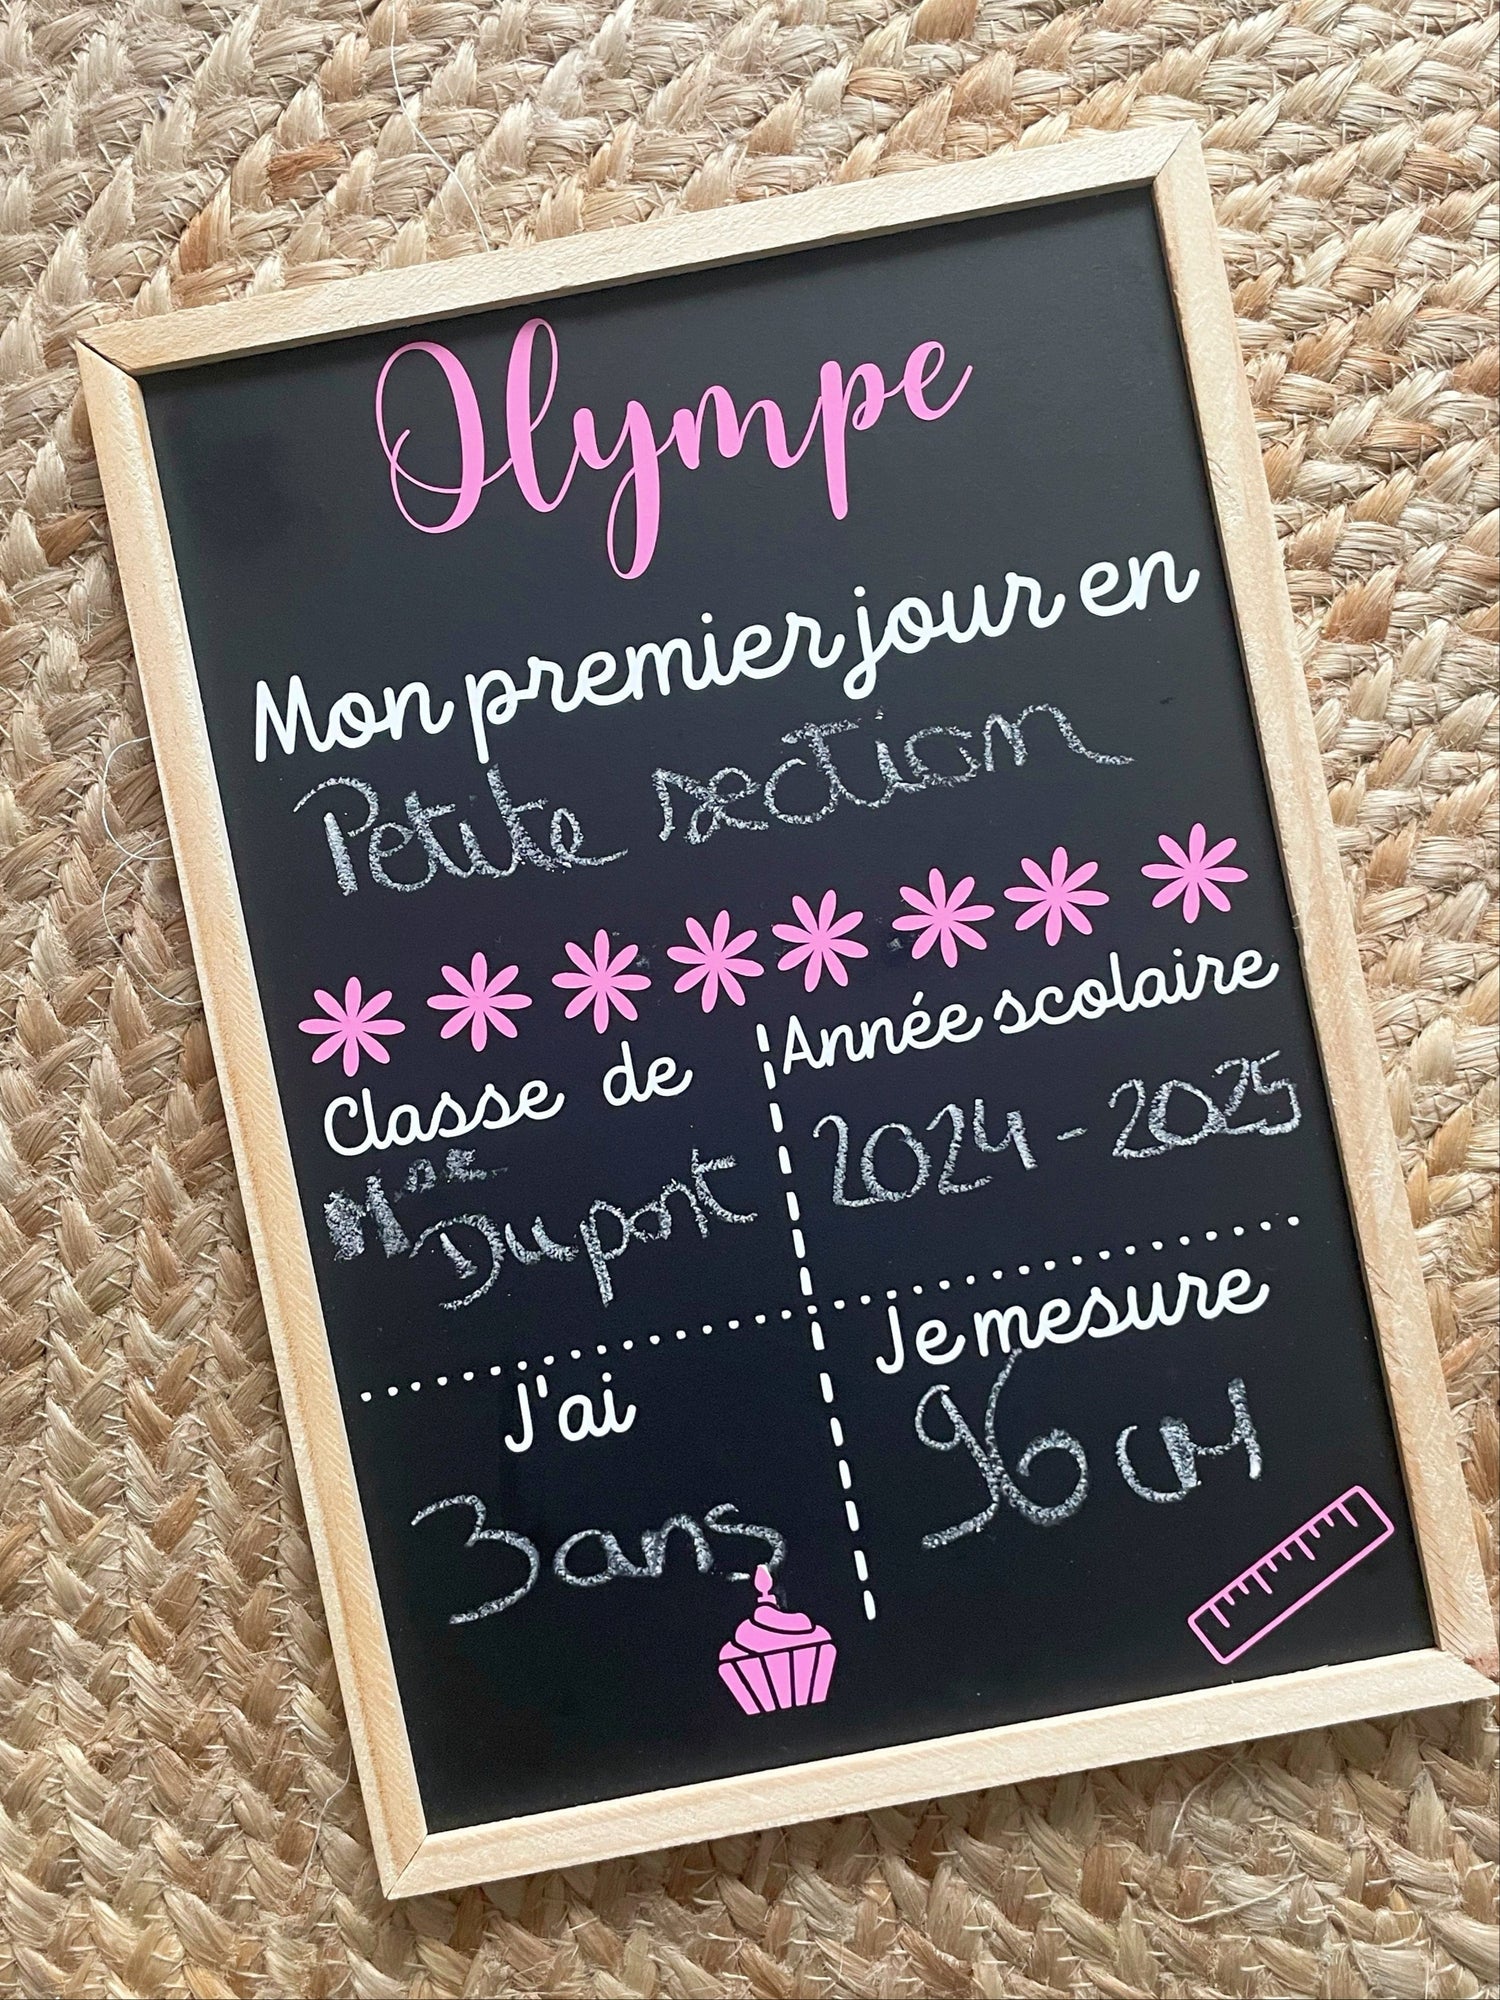 Olympe
Mon premier jour en
Petite section
Classe de
Mme Dupont
Année scolaire
2024 - 2025
J'ai
3 ans
Je mesure
96 cm